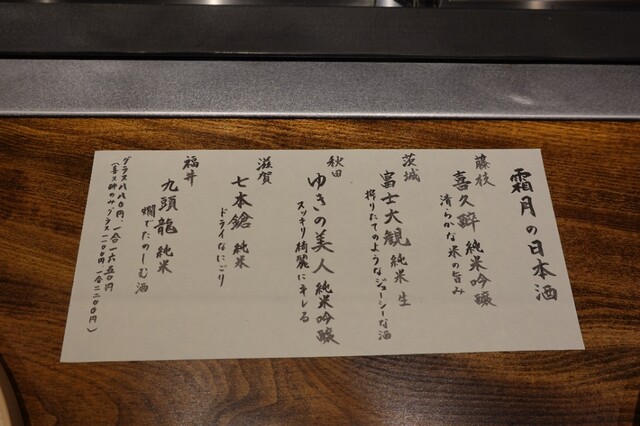 霜月の日本酒
藤枝
喜久醉 純米吟醸
清らかな米の旨み
茨城
富士大観 純米 生
搾りたてのようなジューシーな酒
秋田
ゆきの美人 純米吟醸
スッキリ綺麗にキレる
滋賀
七本鎗 純米
ドライなにごり
福井
九頭龍 純米
燗でたのしむ酒
グラス八八〇円、一合一六五〇円
(喜久醉のみ、グラス一一〇〇円 一合二二〇〇円)